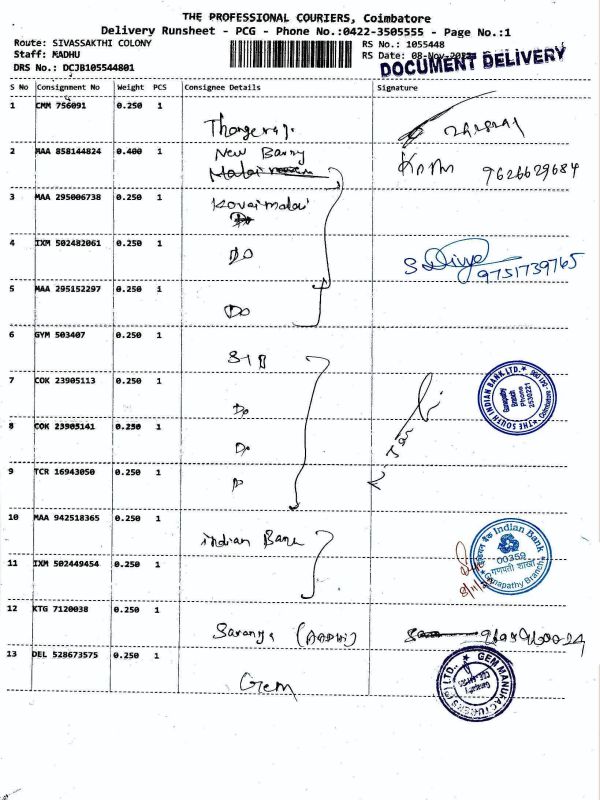 THE PROFESSIONAL COURIERS, Coimbatore
Delivery Runsheet - PCG - Phone No.:0422-3505555 - Page No.:1
Route: SIVASSAKTHI COLONY
RS No.: 1055448
Staff: MADHU
RS Date: 08-Nov-
DOCUMENT DELIVERY
DRS No.: DCJB105544801
S No Consignment No Weight PCS Consignee Details Signature
1 CMM 756091 0.250 1
2 MAA 858144824 0.400 1 New
9626629684
3 MAA 295006738 0.250 1 Kovaimalai
4 IXM 502482061 0.250 1 DO S Divya
9751739765
5 MAA 295152297 0.250 1 Do
6 GYM 503407 0.250 1 SIB
7 COK 23905113 0.250 1 Do
THE SOUTH INDIAN BANK LTD.
Ganapathy
Branch
Phone
2530221
8 COK 23905141 0.250 1 Do
9 TCR 16943050 0.250 1 D
10 MAA 942518365 0.250 1 indian Bank
इंडियन बैंक Indian Bank
00352
गणपती शाखा
Ganapathy Branch
11 IXM 502449454 0.250 1
12 KTG 7120038 0.250 1 Saranya
13 DEL 528673575 0.250 1 Gem
GEM MANUFACTURERS (P) LTD.